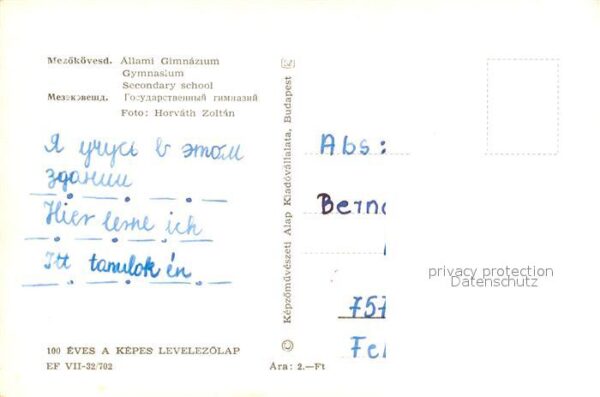 Mezőkövesd. Állami Gimnázium
Gymnasium
Secondary school
Мезэкэвешд. Государственный гимназий
Foto: Horváth Zoltán
Я учусь в этом
здании
Hier lerne ich
Itt tanulok én
100 ÉVES A KÉPES LEVELEZŐLAP
EF VII-32/702
Képzőművészeti Alap Kiadóvállalata, Budapest
Ára: 2.—Ft
Abs:
Bernd
757
Fe
privacy protection
Datenschutz